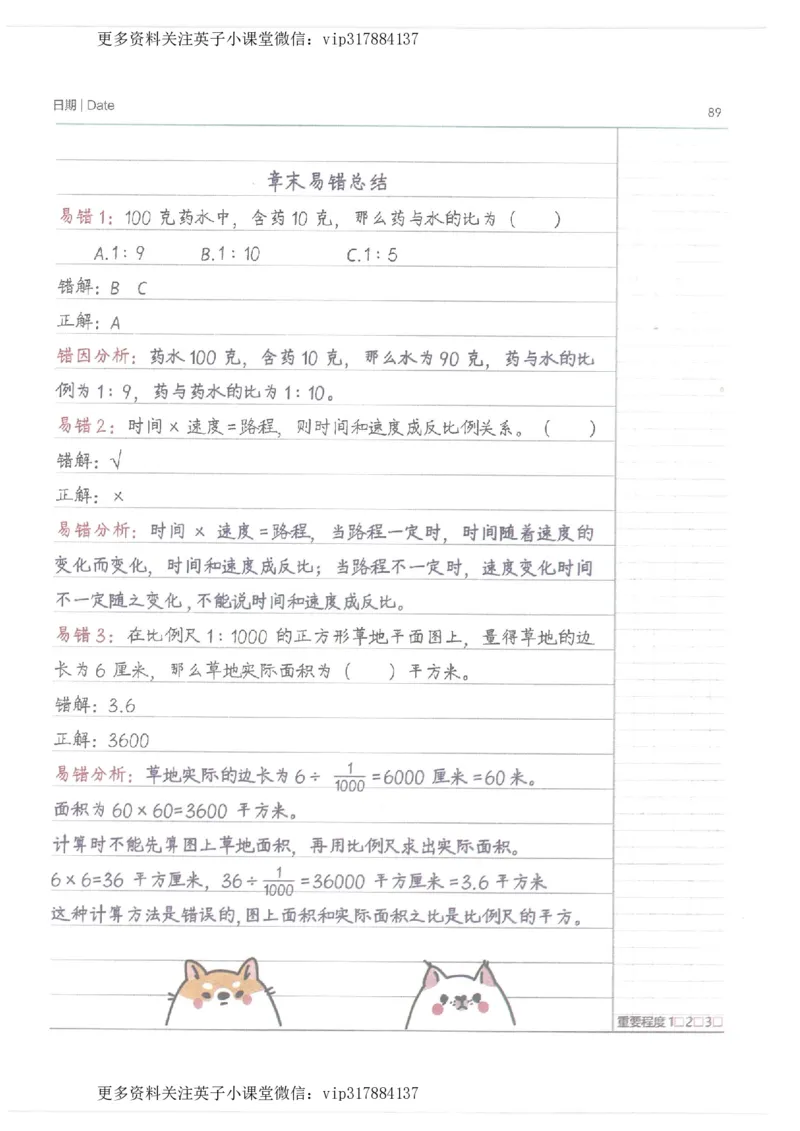 更多资料关注英子小课堂微信：vip317884137
日期 | Date
89
章末易错总结
易错1：100克药水中，含药10克，那么药与水的比为（　　）
A.1：9　B.1：10　C.1：5
错解：B C
正解：A
错因分析：药水100克，含药10克，那么水为90克，药与水的比
例为1：9，药与药水的比为1：10。
易错2：时间×速度=路程，则时间和速度成反比例关系。（　　）
错解：√
正解：×
易错分析：时间×速度=路程，当路程一定时，时间随着速度的
变化而变化，时间和速度成反比；当路程不一定时，速度变化时间
不一定随之变化，不能说时间和速度成反比。
易错3：在比例尺1：1000的正方形草地平面图上，量得草地的边
长为6厘米，那么草地实际面积为（　　）平方米。
错解：3.6
正解：3600
易错分析：草地实际的边长为6÷1/1000=6000厘米=60米。
面积为60×60=3600平方米。
计算时不能先算图上草地面积，再用比例尺求出实际面积。
6×6=36平方厘米，36÷1/1000=36000平方厘米=3.6平方米
这种计算方法是错误的，图上面积和实际面积之比是比例尺的平方。
重要程度 1□2□3□
更多资料关注英子小课堂微信：vip317884137